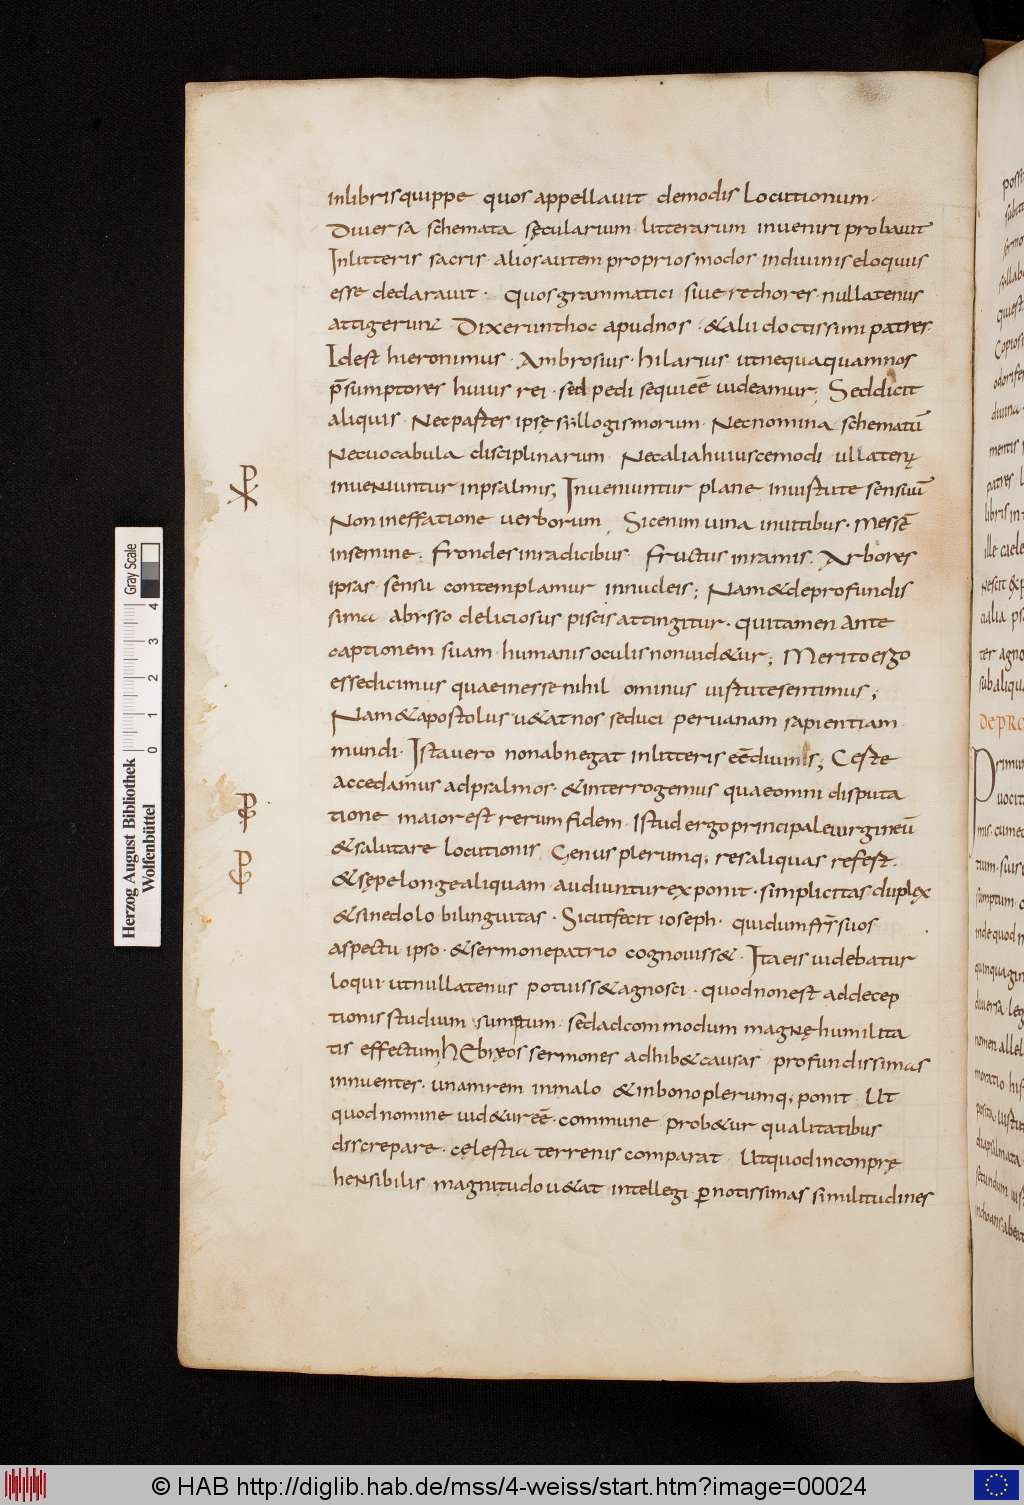 inlibrisquippe quosappellauit demodis Locutionum.
Diuersa schemata sęcularium litterarum inueniri probauit
Inlitteris sacris aliosautem propriosmodos indiuinis eloquiis
esse declarauit. Quosgrammatici siue rethores nullatenus
attigerunt Dixerunthoc apudnos &alii doctissimi patres.
Idest hieronimus. Ambrosius. hilarius utnequaquamnos
p̄sumptores huius rei. sed pedi sequieē uideamur; Seddicit
aliquis. Necpartes ipsę syllogismorum Necnomina schematū
Necuocabula disciplinarum Necaliahuiuscemodi ullaterę
inueniuntur inpsalmis; Inueniuntur plane inuirtute sensuū
Non ineffatione uerborum, Sicenim uina inuitibus. messē
insemine. frondes inradicibus fructus inramis. Arbores
ipsas sensu contemplamur innucleis; Nam&deprofundis
sima abysso deliciosus piscis attingitur. quitamen ante
captionem suam humanis oculis nonuid&ur; Meritoergo
essedicimus quaeinesse nihil ominus uirtutesentimus;
Nam&apostolus u&atnos seduci peruanam sapientiam
mundi. Istauero nonabnegat inlitteris eēdiuinis; Certe
accedamus adpsalmos. &interrogemus quaeomni disputa
tione maiorest rerum fidem. Istud ergo principaleuirgineū
&salutare locutionis Genus plerumq; resaliquas refert.
&sepelongealiquam audiunturexponit. simplicitas duplex
&sinedolo bilinguitas. Sicutfecit ioseph. quidum fr̄suos
aspectu ipso. &sermonepatrio cognouiss&. Itaeis uidebatur
loqui utnullatenus potuiss&agnosci. quodnonest addecep
tionis studium sumptum. sedadcommodum magnęhumilita
tis effectum hEbręos sermones adhib&causas profundissimas
innuentes. unamrem inmalo &inbonoplerumq; ponit Ut
quodnomine uid&ureē. commune prob&ur qualitatibus
discrepare. cęlestia terrenis comparat Utquodinconprę
hensibilis magnitudo u&at intellegi ꝑnotissimas similitudines
de PRO
Herzog August Bibliothek
Wolfenbüttel
Gray Scale
0 1 2 3 4
© HAB http://diglib.hab.de/mss/4-weiss/start.htm?image=00024